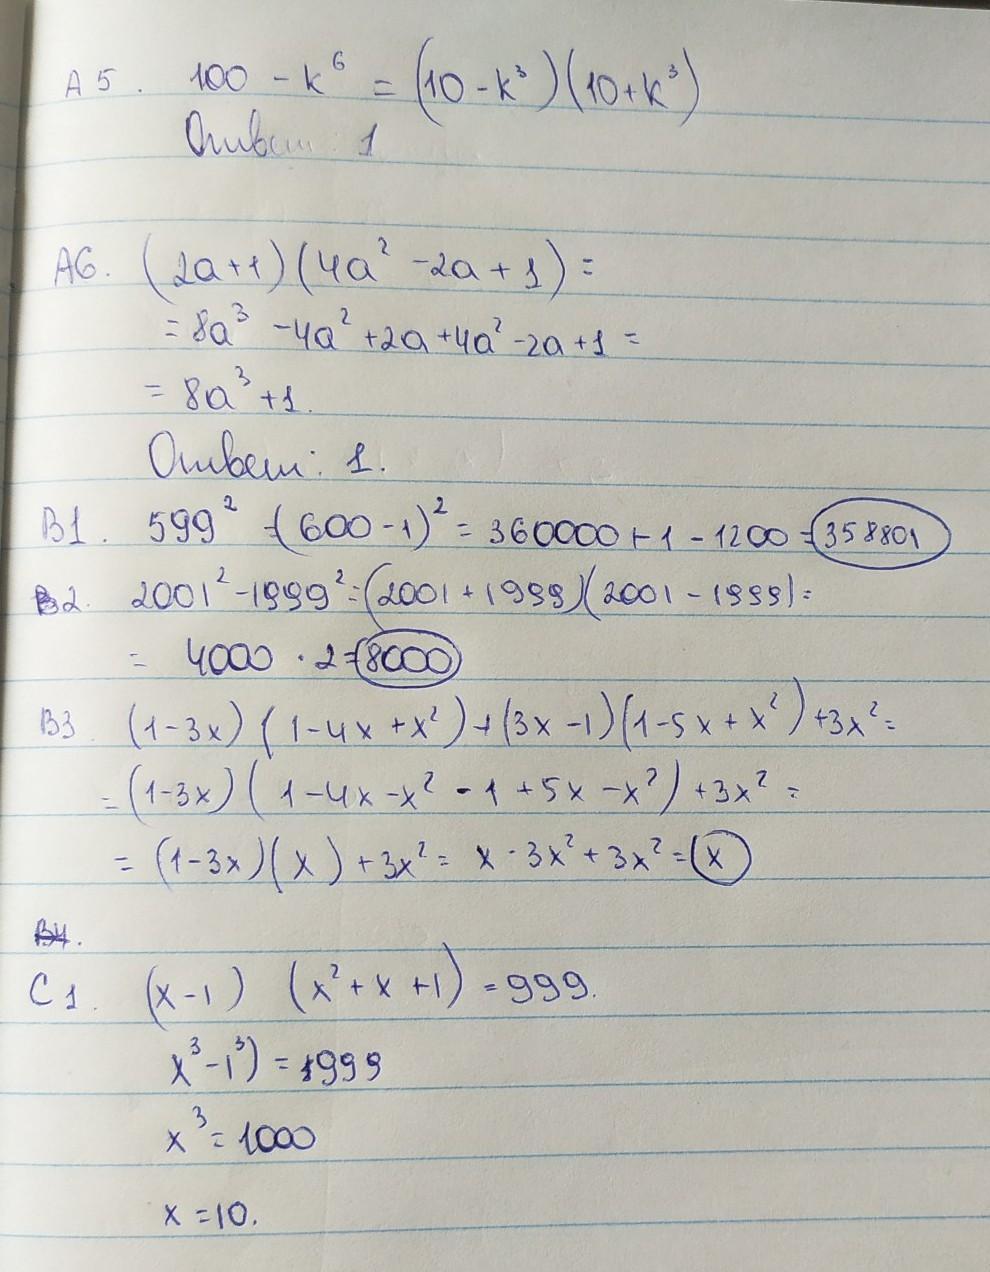 А5. 100 - k⁶ = (10 - k³)(10 + k³)
Ответ: 1
А6. (2a+1)(4a² - 2a + 1) =
= 8a³ - 4a² + 2a + 4a² - 2a + 1 =
= 8a³ + 1.
Ответ: 1.
В1. 599² = (600 - 1)² = 360000 + 1 - 1200 = 358801
В2. 2001² - 1999² = (2001 + 1999)(2001 - 1999) =
= 4000 · 2 = 8000
В3. (1 - 3x)(1 - 4x + x²) + (3x - 1)(1 - 5x + x²) + 3x² =
= (1 - 3x)(1 - 4x - x² - 1 + 5x - x²) + 3x² =
= (1 - 3x)(x) + 3x² = x - 3x² + 3x² = x
В4.
С1. (x - 1) (x² + x + 1) = 999.
x³ - 1³) = 999
x³ = 1000
x = 10.